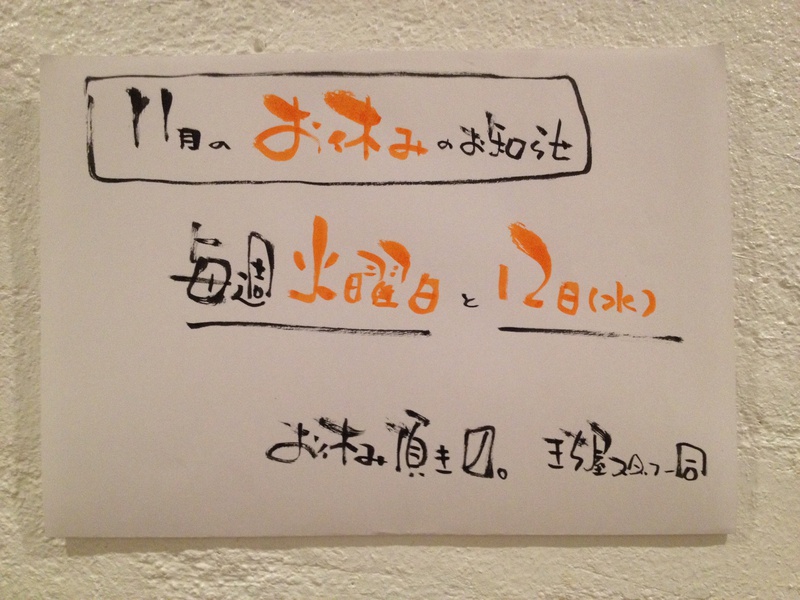 11月のお休みのお知らせ
毎週火曜日と12日(水)
お休み頂き〼。 きち屋スタッフ一同